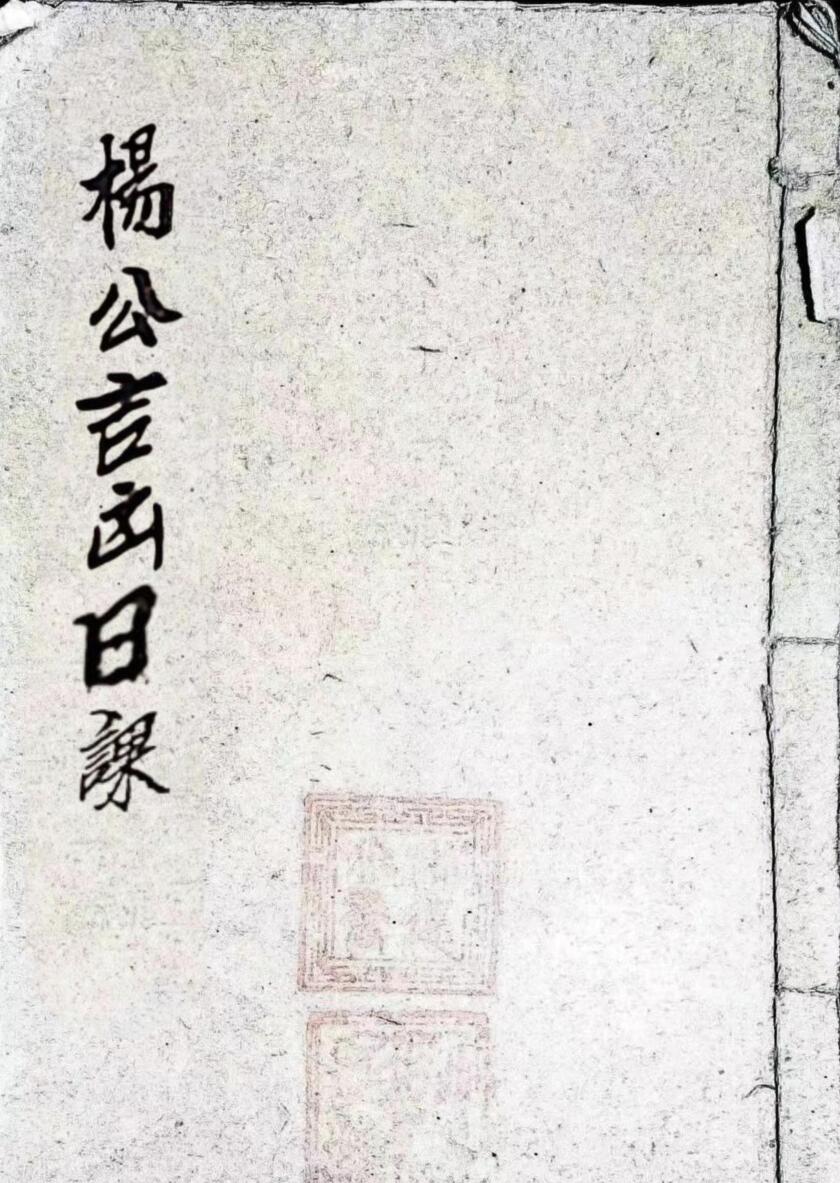 楊公吉凶日課